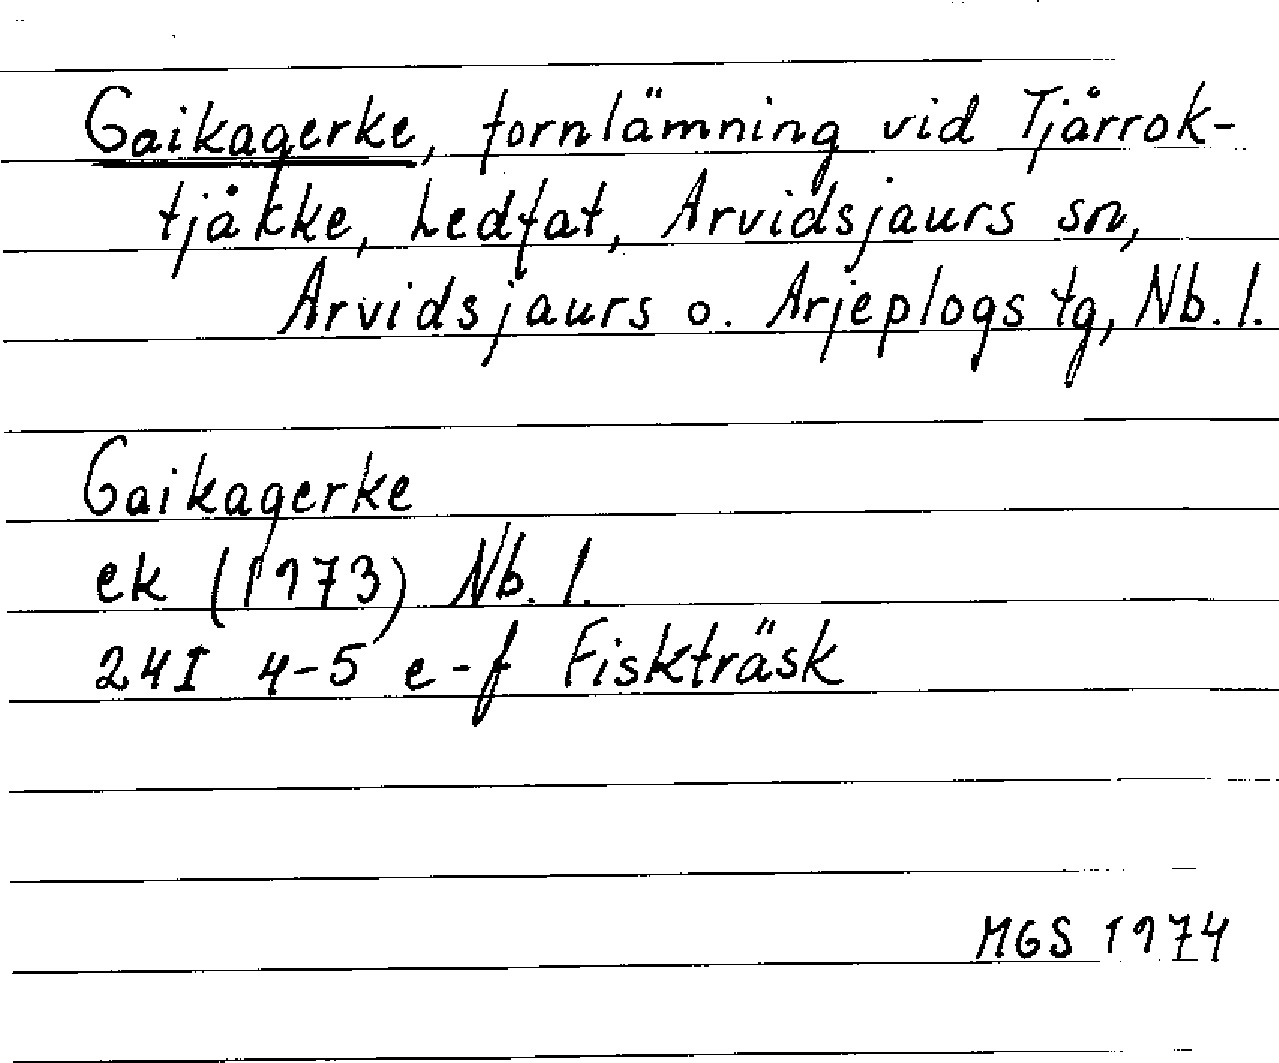 Gaikagerke, fornlämning vid Tjårrok-
tjåkke, Ledfat, Arvidsjaurs sn,
Arvidsjaurs o. Arjeplogs tg, Nb. l.
Gaikagerke
ek (1973) Nb. l.
24I 4-5 e-f Fiskträsk
MGS 1974